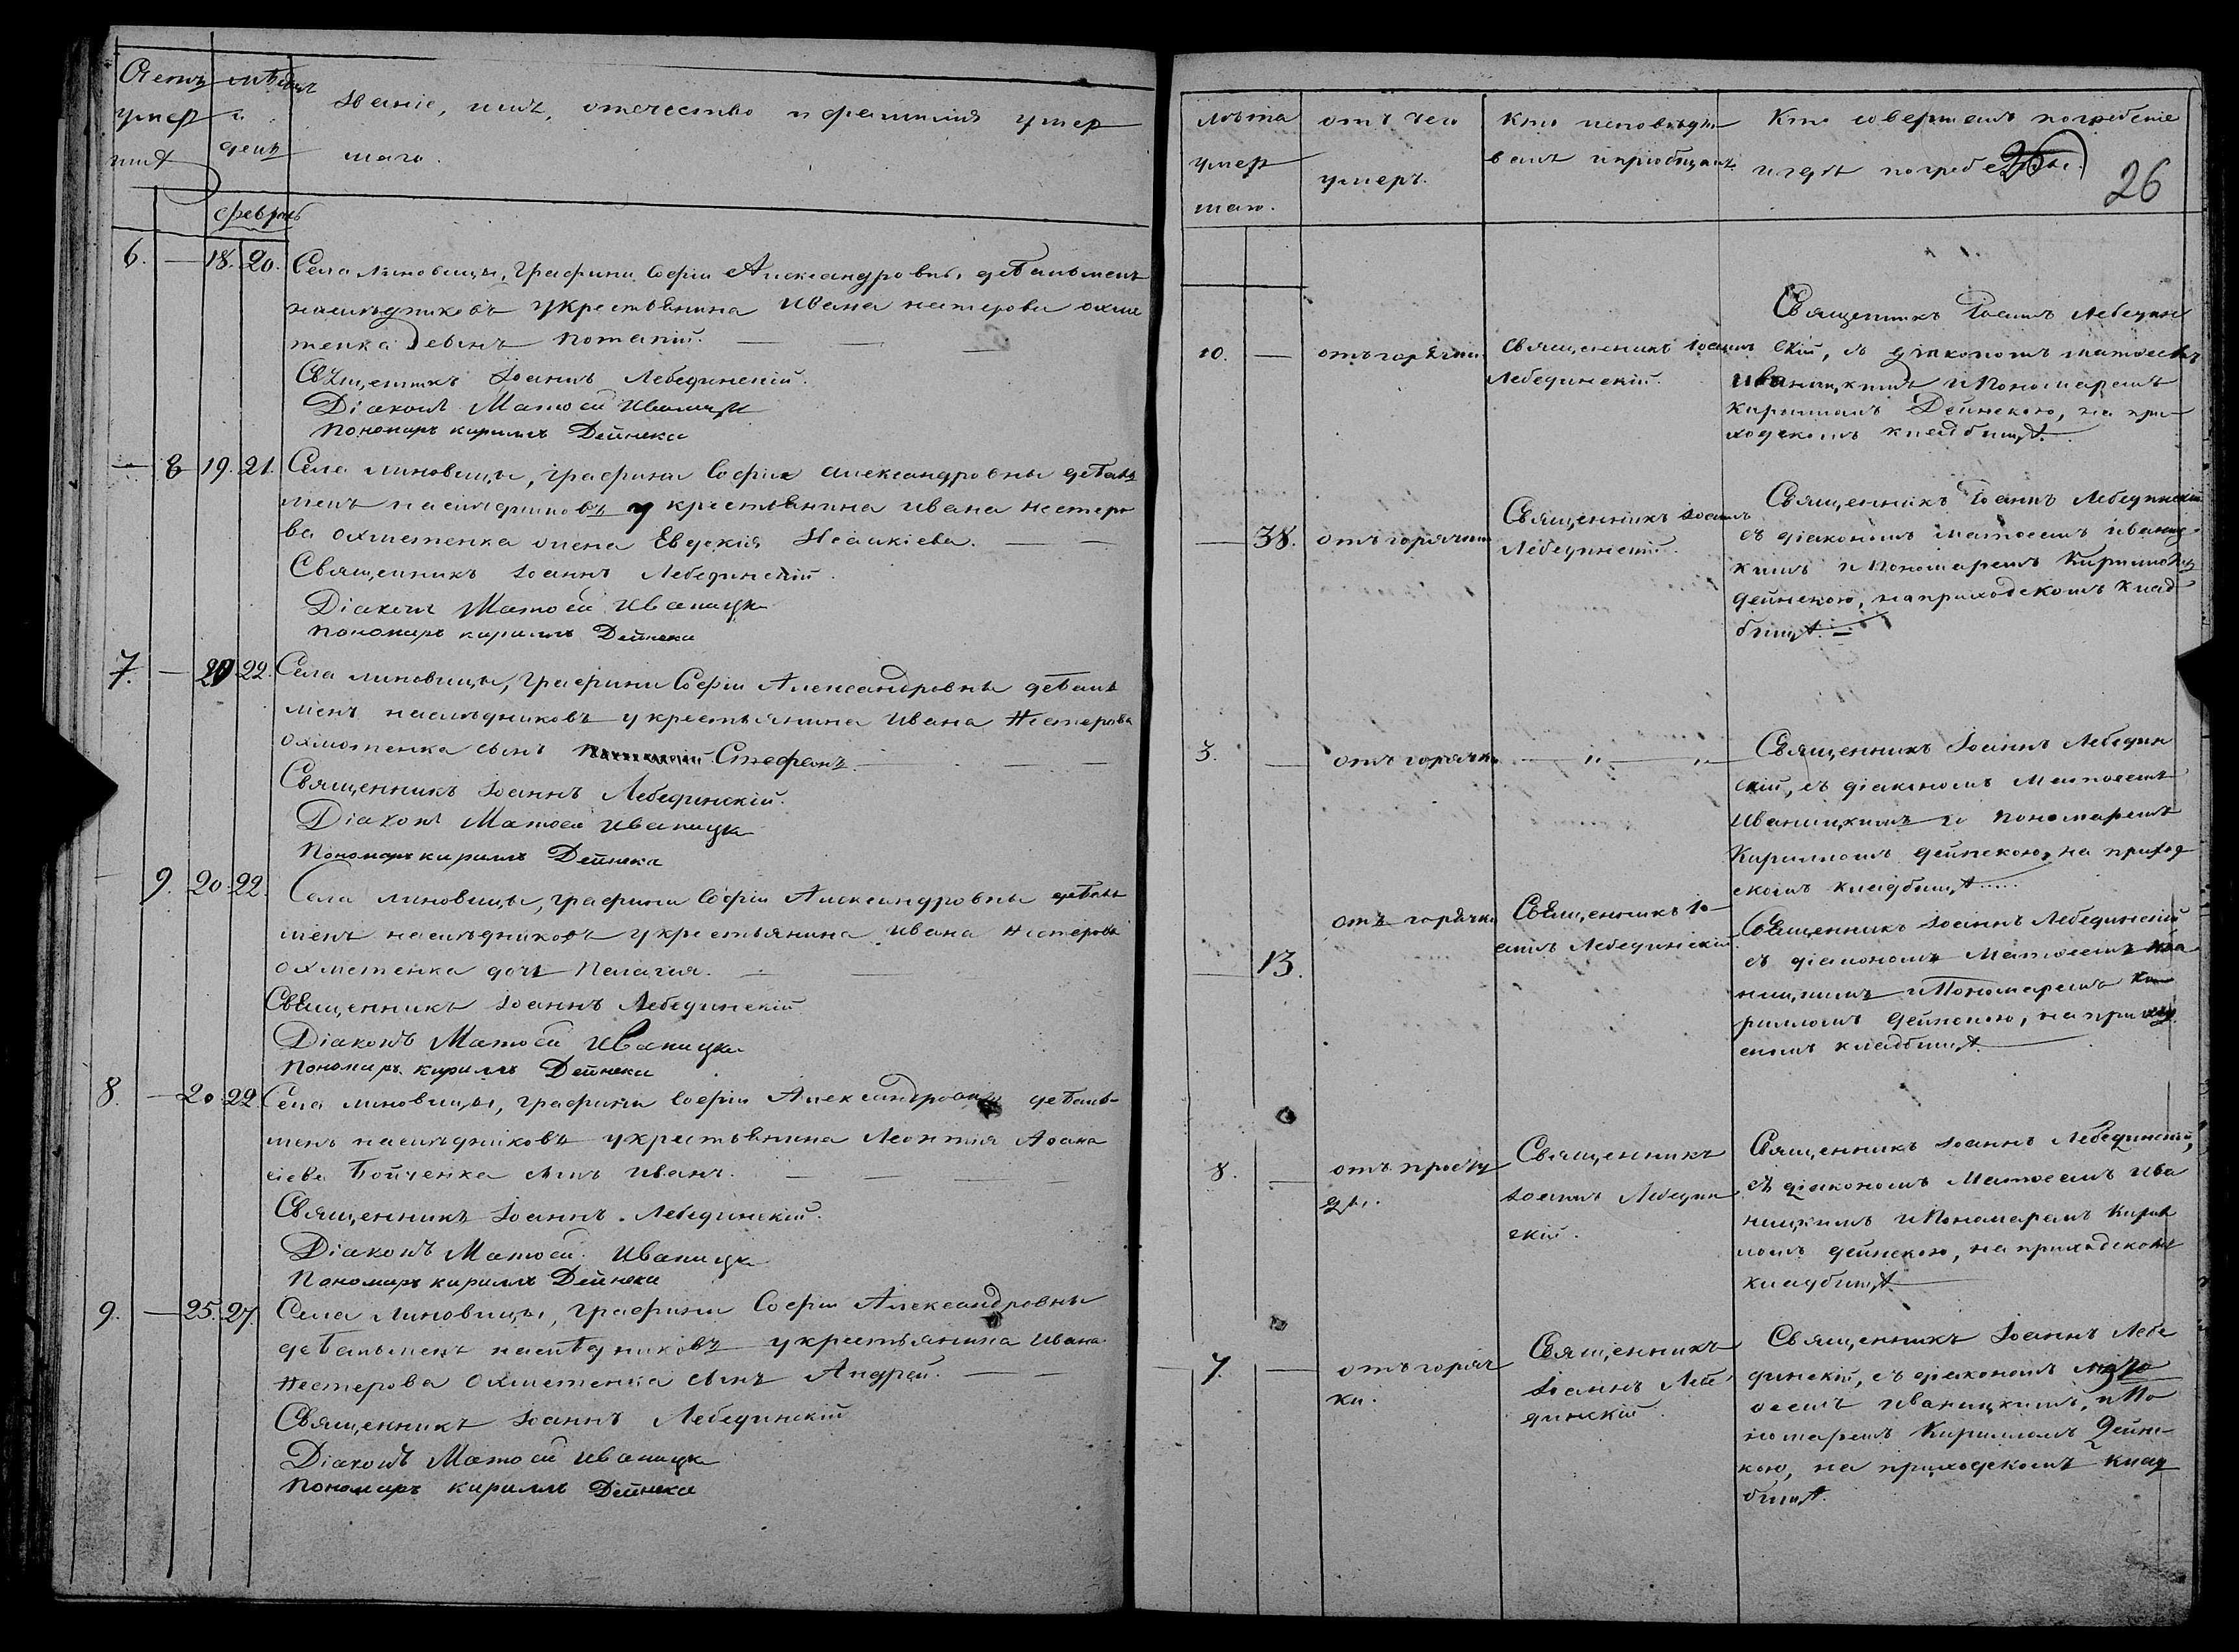 Счетъ
умер
шихъ
мѣсяцъ
и
день
званіе, имя, отечество и фамилія умер
шаго.
февраль
6. — 18. 20. Села Линовицы, Графини Софіи Александровны деБальменъ
наслѣдниковъ укрестьянина Ивана нестерова охме
тенка сынъ Потапій. — — —
Священникъ Іоаннъ Лебединскій.
Діаконъ Матѳей Иваницкій
Пономарь кириллъ Дейнека
— 8 19. 21. Села Линовицы, графини Софіи Александровны деБаль
менъ наслѣдниковъ у крестьянина ивана нестеро
ва охметенка жена Евдокія Исаакіева. — —
Священникъ Іоаннъ Лебединскій.
Діаконъ Матѳей Иваницкій
Пономарь кириллъ Дейнека
7. — 20 22. Села линовицы, Графини Софіи Александровны деБаль
менъ наслѣдниковъ укрестьянина Ивана Нестерова
охметенка сынъ Стефанъ. — — —
Священникъ Іоаннъ Лебединскій.
Діаконъ Матѳей Иваницкій
Пономарь кириллъ Дейнека
— 9. 20. 22. Села линовицы, графини Софіи Александровны деБаль
менъ наслѣдниковъ укрестьянина Ивана Нестерова
охметенка дочь Пелагия. — —
Священникъ Іоаннъ Лебединскій
Діаконъ Матѳей Иваницкій
Пономарь кириллъ Дейнека
8. — 20. 22. Села линовицы, графини Софіи Александровны деБаль-
менъ наслѣдниковъ укрестьянина Леонтія Аѳана
сіева Бойченка сынъ Иванъ. — — — —
Священникъ Іоаннъ Лебединскій.
Діаконъ Матѳей Иваницкій
Пономарь кириллъ Дейнека
9. — 25. 27. Села Линовицы, графини Софіи Александровны
деБальменъ наслѣдниковъ укрестьянина Ивана
Нестерова Охметенка сынъ Андрей. — —
Священникъ Іоаннъ Лебединскій
Діаконъ Матѳей Иваницкій
Пономарь кириллъ Дейнека
лѣта
умер
шаго.
отъ чего
умеръ.
кто исповѣды
валъ ипріобщалъ
Кто совершалъ погребеніе
игдѣ погребены.
26
10. — отъ горячки. Священникъ Іоаннъ
Лебединскій.
Священникъ Іоаннъ Лебедин
скій, съ діакономъ матѳеемъ
иваницкимъ иПономаремъ
Кирилломъ Дейнекою, на при-
ходскомъ кладбищѣ.
— 38. отъ горячки Священникъ Іоаннъ
Лебединскій.
Священникъ Іоаннъ Лебединскій
съ діакономъ матѳеемъ иваниц-
кимъ иПономаремъ Кирилломъ
дейнекою, наприходскомъ клад
бищѣ. —
3. — отъ горячки — „ — „ —
Священникъ Іоаннъ Лебедин
скій, съ діакономъ Матѳеемъ
Иваницкимъ и пономаремъ
Кирилломъ дейнекою, на приход
скомъ кладбищѣ.....
— 13. отъ горячки Священникъ Іо-
аннъ Лебединскій
Священникъ Іоаннъ Лебединскій
съ діакономъ Матѳеемъ Ива
ницкимъ иПономаремъ Ки
рилломъ дейнекою, на приход
скомъ кладбищѣ.
8. — отъ просту
ды. Священникъ
Іоаннъ Лебедин
скій.
Священникъ Іоаннъ Лебединскій,
съ діакономъ Матѳеемъ Ива
ницкимъ иПономаремъ Кирил
ломъ дейнекою, наприходскомъ
кладбищѣ
7. — отъ горяч
ки. Священникъ
Іоаннъ Лебе
динскій.
Священникъ Іоаннъ Лебе
динскій, съ діакономъ Мат
ѳеемъ иваницкимъ, иПо
номаремъ Кирилломъ Дейне-
кою, на приходскомъ клад
бищѣ.